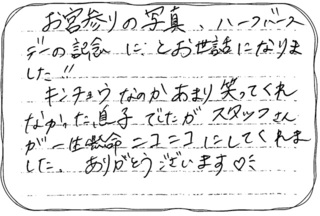 お宮参りの写真、ハーフバース
デーの記念に、とお世話になりま
した"
キンチョウなのかあまり笑ってくれ
なかった息子でしたがスタッフさん
が一生懸命ニコニコにしてくれま
した。ありがとうございます♡